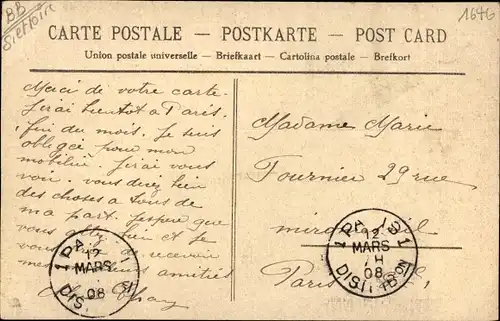 BB
1646
CARTE POSTALE — POSTKARTE — POST CARD
Union postale universelle — Briefkaart — Cartolina postale — Brefkort
Merci de votre carte.
Jirai bientôt a Paris.
fin du mois. Je suis
obligée pour mon
mobilier. Jirai vous
voir. vous direz bien
des choses a tous de
ma part. J'espere que
vous allez bien et je
vous de recevoir
mes amitiés
Madame Marie
Fournier 29 rue
Paris
PA
12
MARS
08
DIS
PARIS 1
12
MARS
08
DISTRIBON